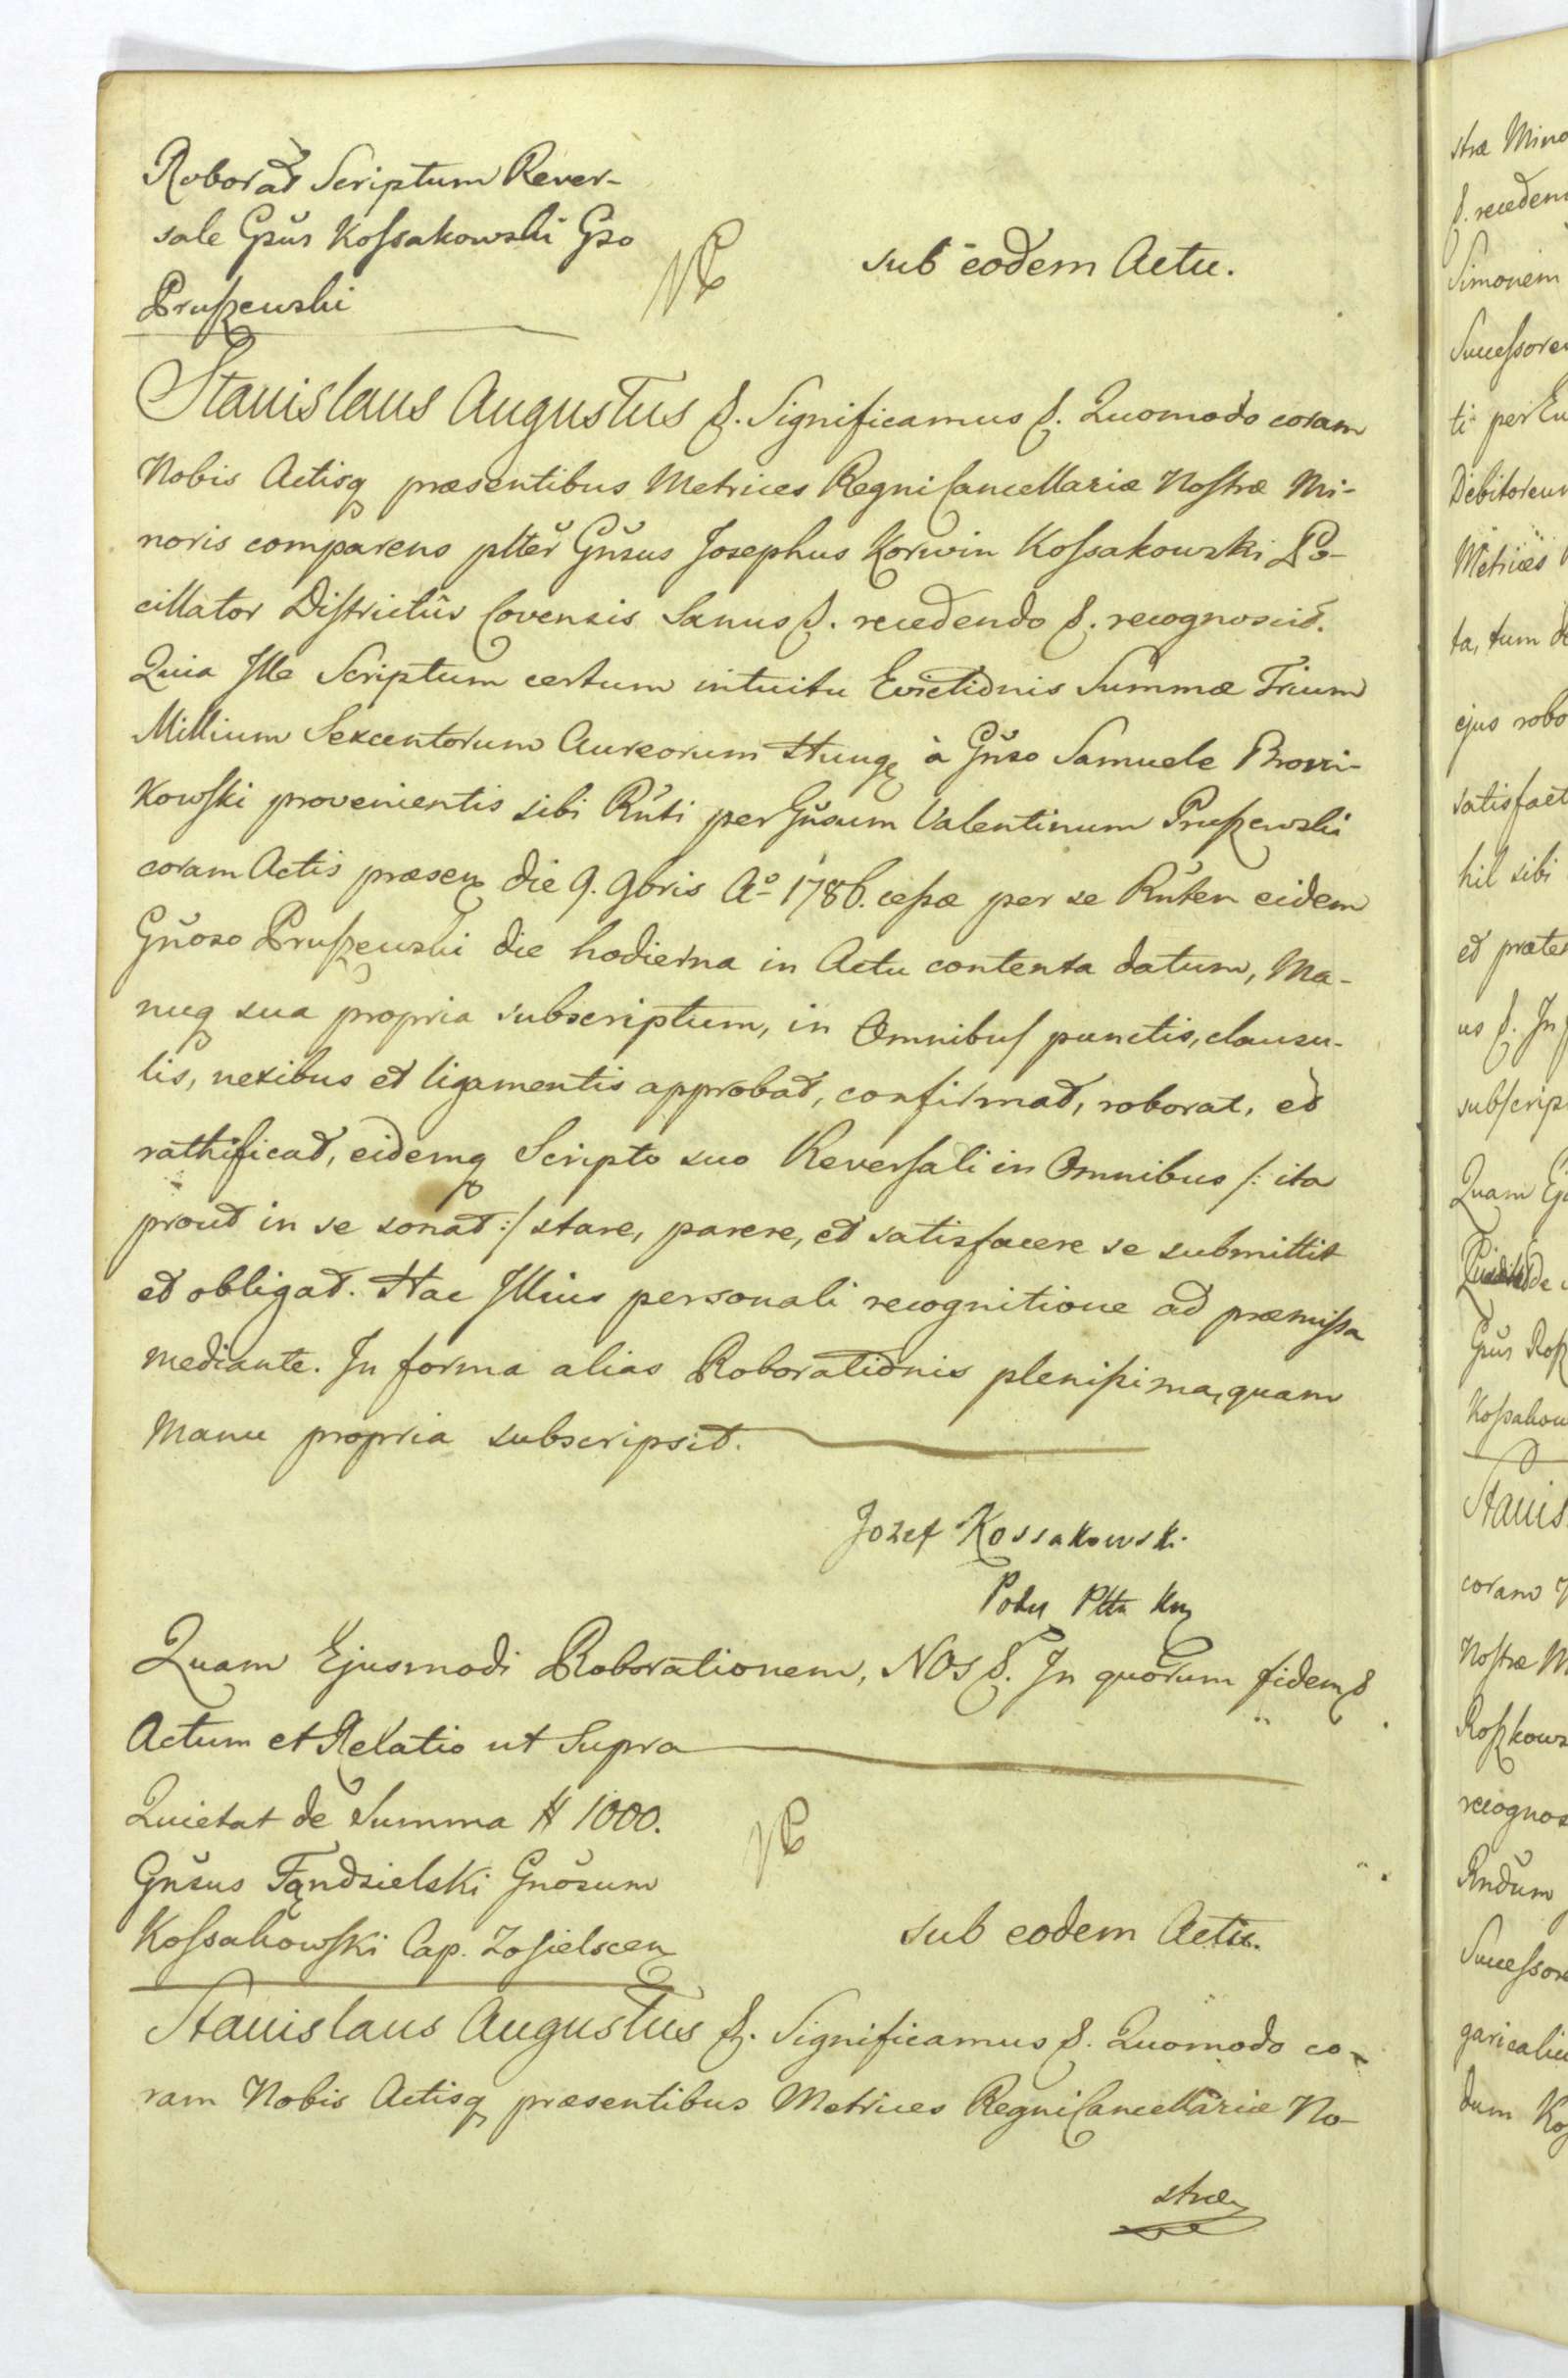 Roborat Scriptum Rever-
sale Gnsus Kossakowski Gso
Pruszewski
sub eodem Actu.
Stanislaus Augustus &. Significamus &. Quomodo coram
Nobis Actisq praesentibus Metrices Regni Cancellariae Nostrae Mi-
noris comparens plter Gnsus Josephus Korwin Kossakowski Po-
cillator Districtus Covensis Sanus &. recedendo &. recognoscit.
Quia Ille Scriptum certum intuitu Evictionis Summae Trium
Millium Sexcentorum Aureorum Hung à Gnso Samuele Broni-
Kowski provenientis sibi Rnti per Gnsum Valentinum Pruszewski
coram Actis praesen die 9. 9bris Ao 1786. cessae per se Rnten eidem
Gnoso Pruszewski die hodierna in Actu contenta datum, Ma-
nuq sua propria subscriptum, in Omnibus punctis, clausu-
lis, nexibus et ligamentis approbat, confirmat, roborat, et
rathificat, eidemq Scripto suo Reversali in Omnibus /: ita
prout in se sonat :/ stare, parere, et satisfacere se submittit
et obligat. Hac Illius personali recognitione ad praemissa
mediante. In forma alias Roborationis plenissima, quam
Manu propria subscripsit.
Jozef Kossakowski
Quam Ejusmodi Roborationem, NOS &. In quorum fidem &
Actum et Relatio ut Supra
Quietat de Summa # 1000.
Gnsus Fąndzielski Gnosum
Kossakowski Cap. Zosielscen
sub eodem Actu.
Stanislaus Augustus &. Significamus &. Quomodo co-
ram Nobis Actisq praesentibus Metrices Regni Cancellariae No-
strae